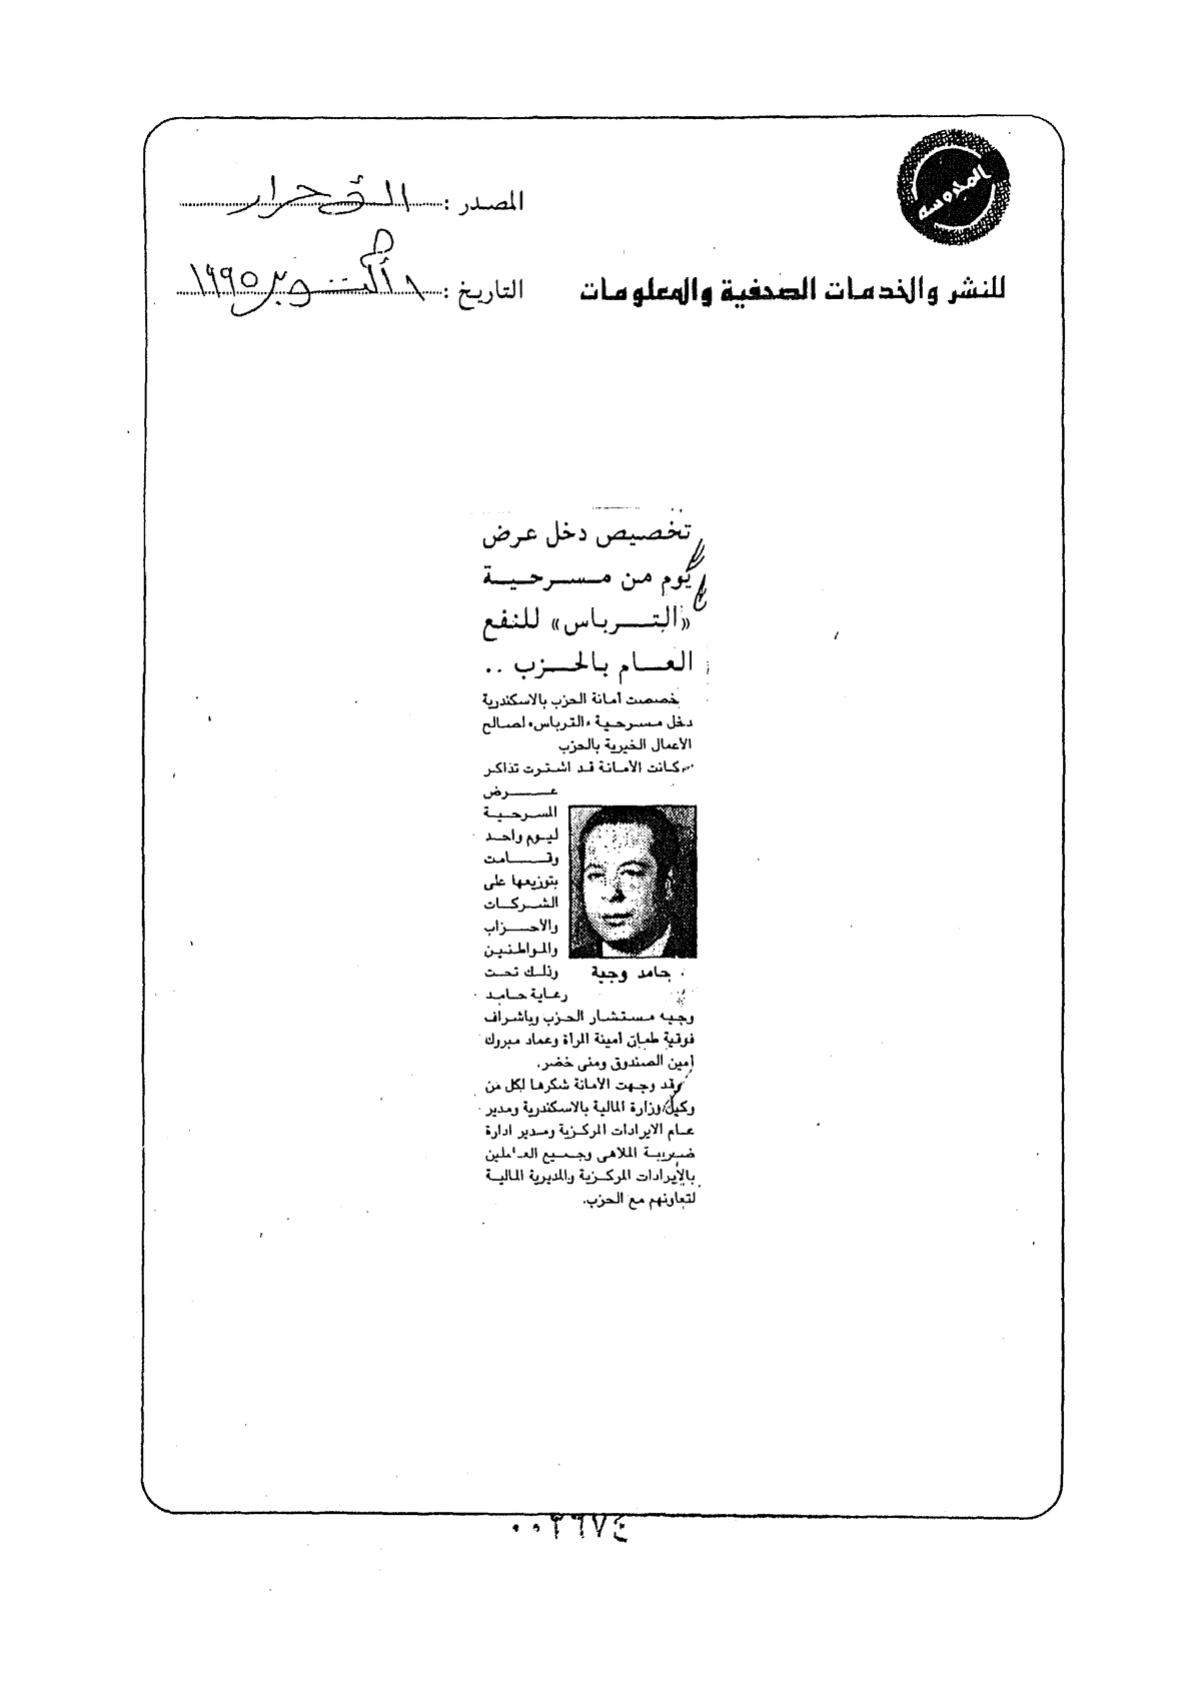 المحروسة
المصدر : الأحرار
للنشر والخدمات الصحفية والمعلومات
التاريخ : ٨ أكتوبر ١٩٩٥
تخصيص دخل عرض
يوم من مسرحية
«التـرباس» للنفع
العـام بالحـزب ..
خصصت أمانة الحزب بالاسكندرية
دخل مسرحية «الترباس» لصالح
الأعمال الخيرية بالحزب
وكانت الأمانة قد اشترت تذاكر
عـرض
المسرحية
ليوم واحد
وقـامت
بتوزيعها على
الشركات
والأحـزاب
والمواطنين
وذلك تحت
رعاية حامد
حامد وجية
وجيه مستشار الحزب وباشراف
فوقية طبان أمينة المرأة وعماد مبروك
أمين الصندوق ومنى خضر.
وقد وجهت الأمانة شكرها لكل من
وكيل وزارة المالية بالاسكندرية ومدير
عام الايرادات المركزية ومدير ادارة
ضريبة الملاهى وجميع العاملين
بالايرادات المركزية والمديرية المالية
لتعاونهم مع الحزب.
٠٠٣٦٧٤